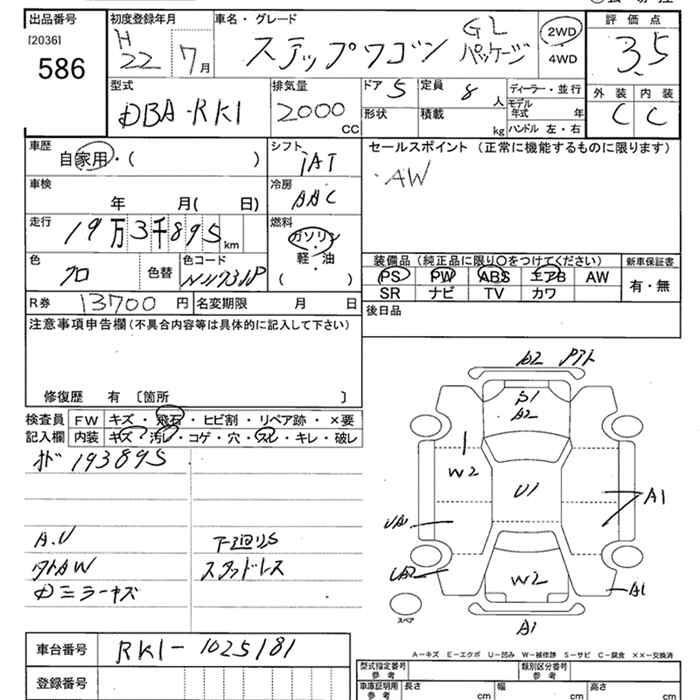 出品番号 初度登録年月 車名・グレード 評価点
[2036] H
586 22 7月 ステップワゴン GL パッケージ 2WD 4WD 3.5
型式 排気量 ドア 5 定員 8 人 ディーラー・並行 外装 内装
DBA-RK1 2000 CC 形状 積載 kg モデル年式 年 C C
ハンドル 左・右
車歴 シフト セールスポイント (正常に機能するものに限ります)
自家用・( ) IAT AW
車検 冷房
年 月( 日) AAC
走行 燃料
19万3千895km ガソリン
軽・油
( )
色 色替 色コード 装備品 (純正品に限り○をつけてください) 新車保証書
クロ PS PW ABS エアB AW 有・無
SR ナビ TV カワ
R券 13700円 名変期限 月 日 後日品
注意事項申告欄 (不具合内容等は具体的に記入して下さい)
修復歴 有 〔箇所 〕
検査員 FW キズ・飛石・ヒビ割・リペア跡・×要
記入欄 内装 キズ・汚レ・コゲ・穴・スレ・キレ・破レ
193895
A.U 下廻りS
タトAW スタッドレス
Dミラーキズ
車台番号 RK1-1025181
登録番号
S1
A2
W2
U1
A1
UA1
W2
A1
スペア
A1
A-キズ E-エクボ U-凹み W-補修跡 S-サビ C-腐食 ××-交換済
型式指定番号 参考 類別区分番号 参考
車庫証明用 参考 長さ cm 幅 cm 高さ cm